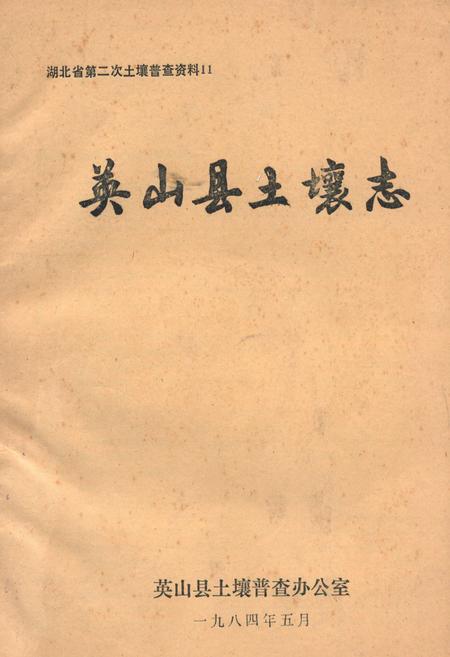 湖北省第二次土壤普查资料11
英山县土壤志
英山县土壤普查办公室
一九八四年五月